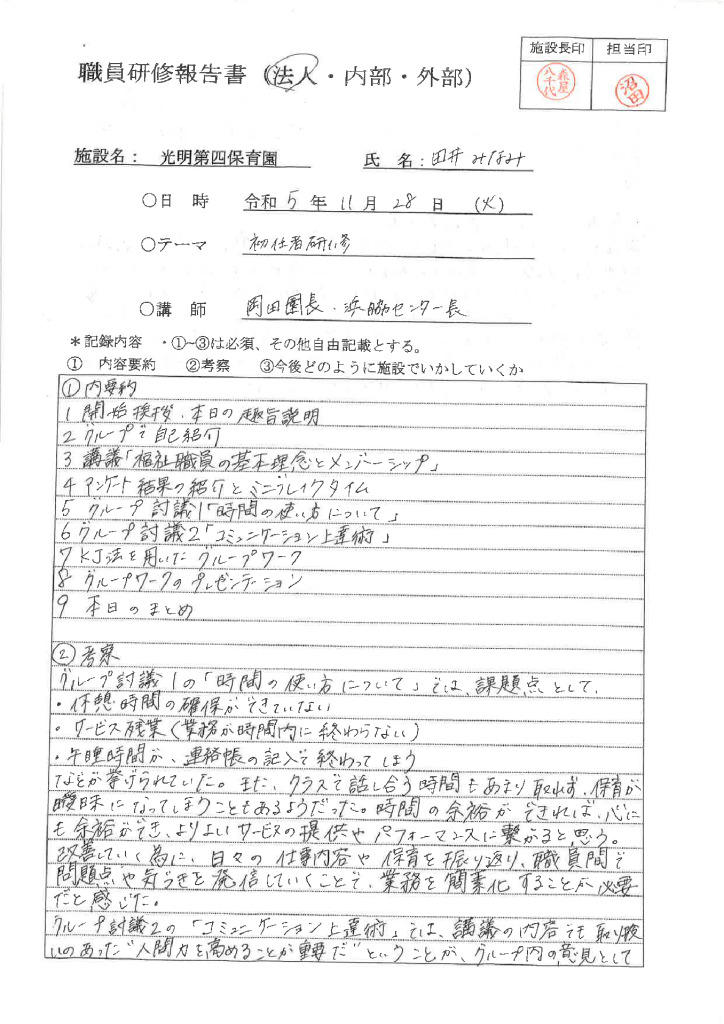 施設長印 担当印
森屋八千代 沼田
職員研修報告書（法人・内部・外部）
施設名： 光明第四保育園 氏 名：田井 みなみ
○日 時 令和 5 年 11 月 28 日 (火)
○テーマ 初任者研修
○講 師 岡田園長・浜脇センター長
＊記録内容 ・①~③は必須、その他自由記載とする。
① 内容要約 ②考察 ③今後どのように施設でいかしていくか
①内要約
1 開始挨拶、本日の趣旨説明
2 グループで自己紹介
3 講議「福祉職員の基本理念とメンバーシップ」
4 アンケート結果の紹介とミニブレイクタイム
5 グループ討議1「時間の使い方について」
6 グループ討議2「コミュニケーション上達術」
7 KJ法を用いたグループワーク
8 グループワークのプレゼンテーション
9 本日のまとめ
②考察
グループ討議1の「時間の使い方について」では、課題点として、
・休憩時間の確保ができていない
・サービス残業（業務が時間内に終わらない）
・午睡時間が、連絡帳の記入で終わってしまう
などが挙げられていた。また、クラスで話し合う時間もあまり取れず、保育が
曖昧になってしまうこともあるようだった。時間の余裕ができれば、心に
も余裕ができ、よりよいサービスの提供やパフォーマンスに繋がると思う。
改善していく為に、日々の仕事内容や保育を振り返り、職員間で
問題点や気づきを発信していくことで、業務を簡素化することが必要
だと感じた。
グループ討議2の「コミュニケーション上達術」では、講議の内容でも取り扱
いのあった"人間力を高めることが重要だ"ということが、グループ内の意見として